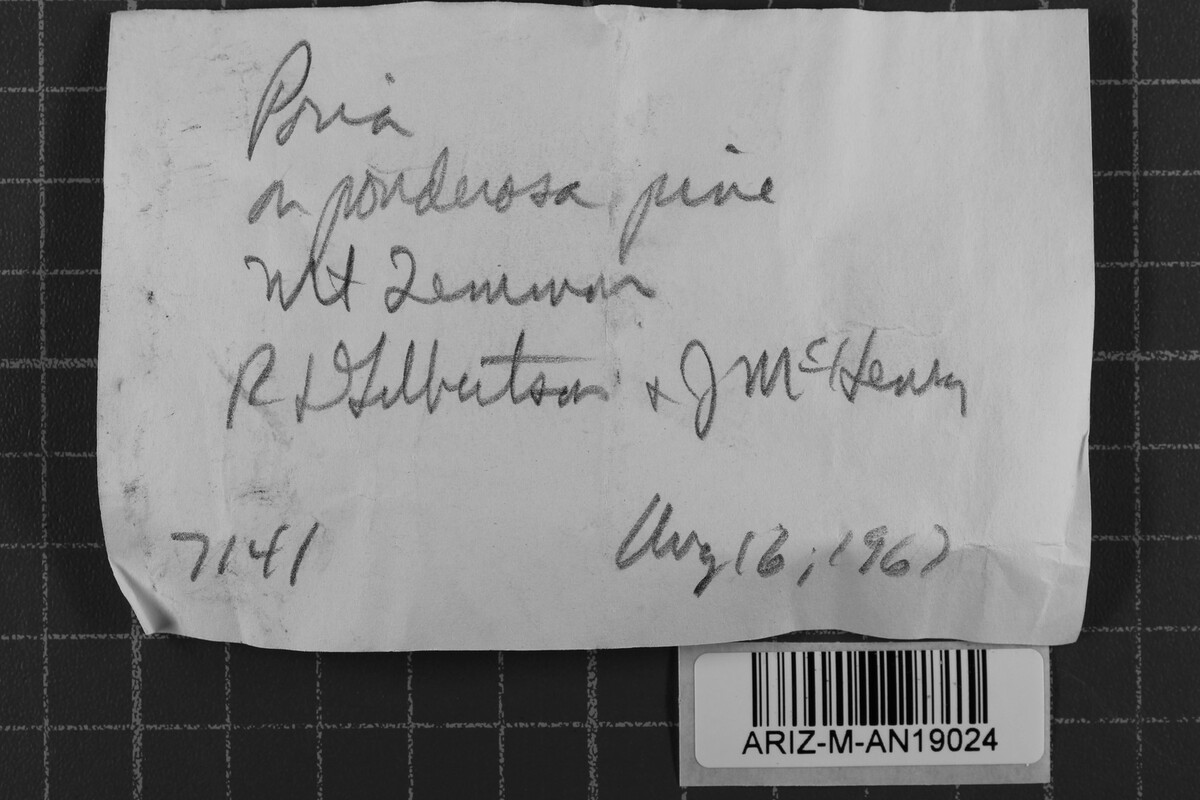 Poria
on ponderosa pine
Mt Lemmon
R L Gilbertson & J McHenry
7141
Aug 16, 1967
ARIZ-M-AN19024